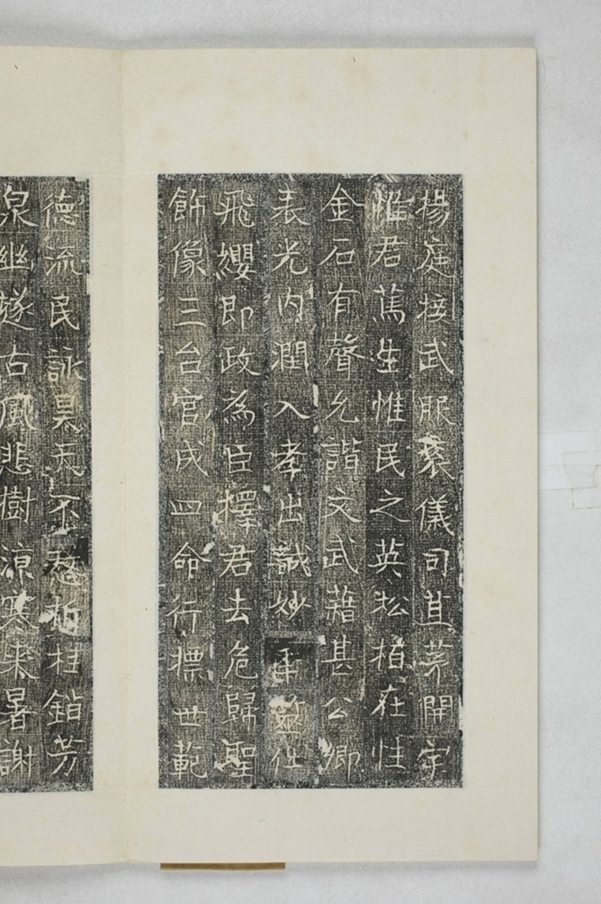 楊庭接武服袞儀司苴茅開宇
惟君篤生惟民之英松柏在性
金石有聲允諧文武藉甚公卿
表光内潤入孝出誠妙年登仕
飛纓即政為臣擇君去危歸聖
飾像三台官成四命行標世範
德流民詠昊天不憖桂鎖芳
泉幽燧古風悲樹涼寒來暑謝